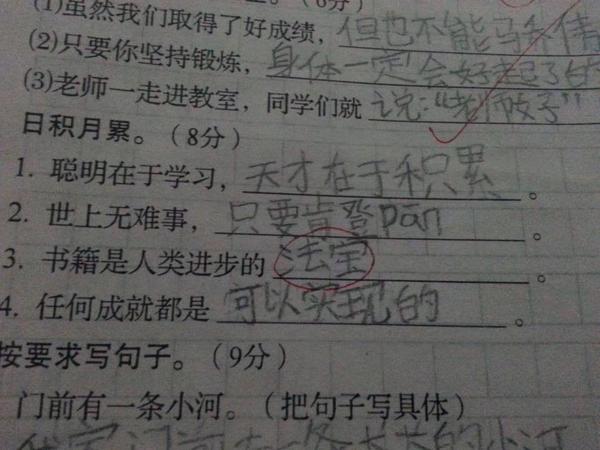 (1)虽然我们取得了好成绩，但也不能马乔情
(2)只要你坚持锻炼，身体一定会好起了
(3)老师一走进教室，同学们就说：“老师
日积月累。（8分）
1. 聪明在于学习，天才在于积累。
2. 世上无难事，只要肯登pān。
3. 书籍是人类进步的法宝。
4. 任何成就都是可以实现的。
按要求写句子。（9分）
门前有一条小河。（把句子写具体）
我家门前有一条长长的小河